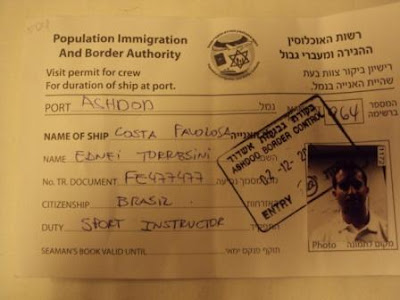 Population Immigration
And Border Authority
רשות האוכלוסין
ההגירה ומעברי גבול
Visit permit for crew
For duration of ship at port.
רישיון ביקור צוות בעת
שהיית האנייה בנמל
PORT ASHDOD נמל
המספר
ברשימה
064
NAME OF SHIP COSTA FAVOLOSA האנייה
NAME EDNEI TORRESINI
No. TR. DOCUMENT FE477477
CITIZENSHIP BRASIL
DUTY SPORT INSTRUCTOR
SEAMAN'S BOOK VALID UNTIL תוקף פנקס ימאי
ביקורת גבולות אשדוד
ASHDOD BORDER CONTROL
02-12-20
ENTRY
Photo מקום לתמונה